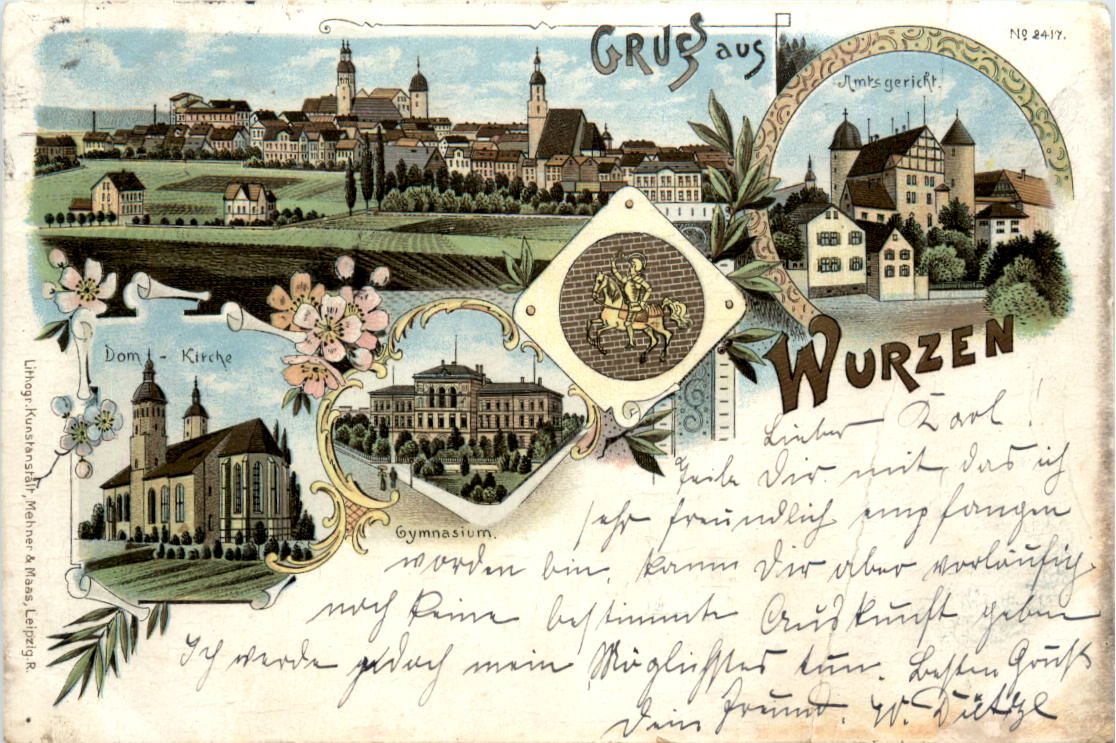 GRUSS aus
No 2417.
Amtsgericht.
WURZEN
Dom - Kirche
Gymnasium.
Lithogr. Kunstanstalt, Mehner & Maas, Leipzig-R.
Lieber Karl!
Teile Dir mit, das ich
sehr freundlich empfangen
worden bin, kann Dir aber vorläufig
noch keine bestimmte Auskunft geben
Ich werde jedoch mein Möglichstes tun. Besten Gruß
Dein Freund. W.